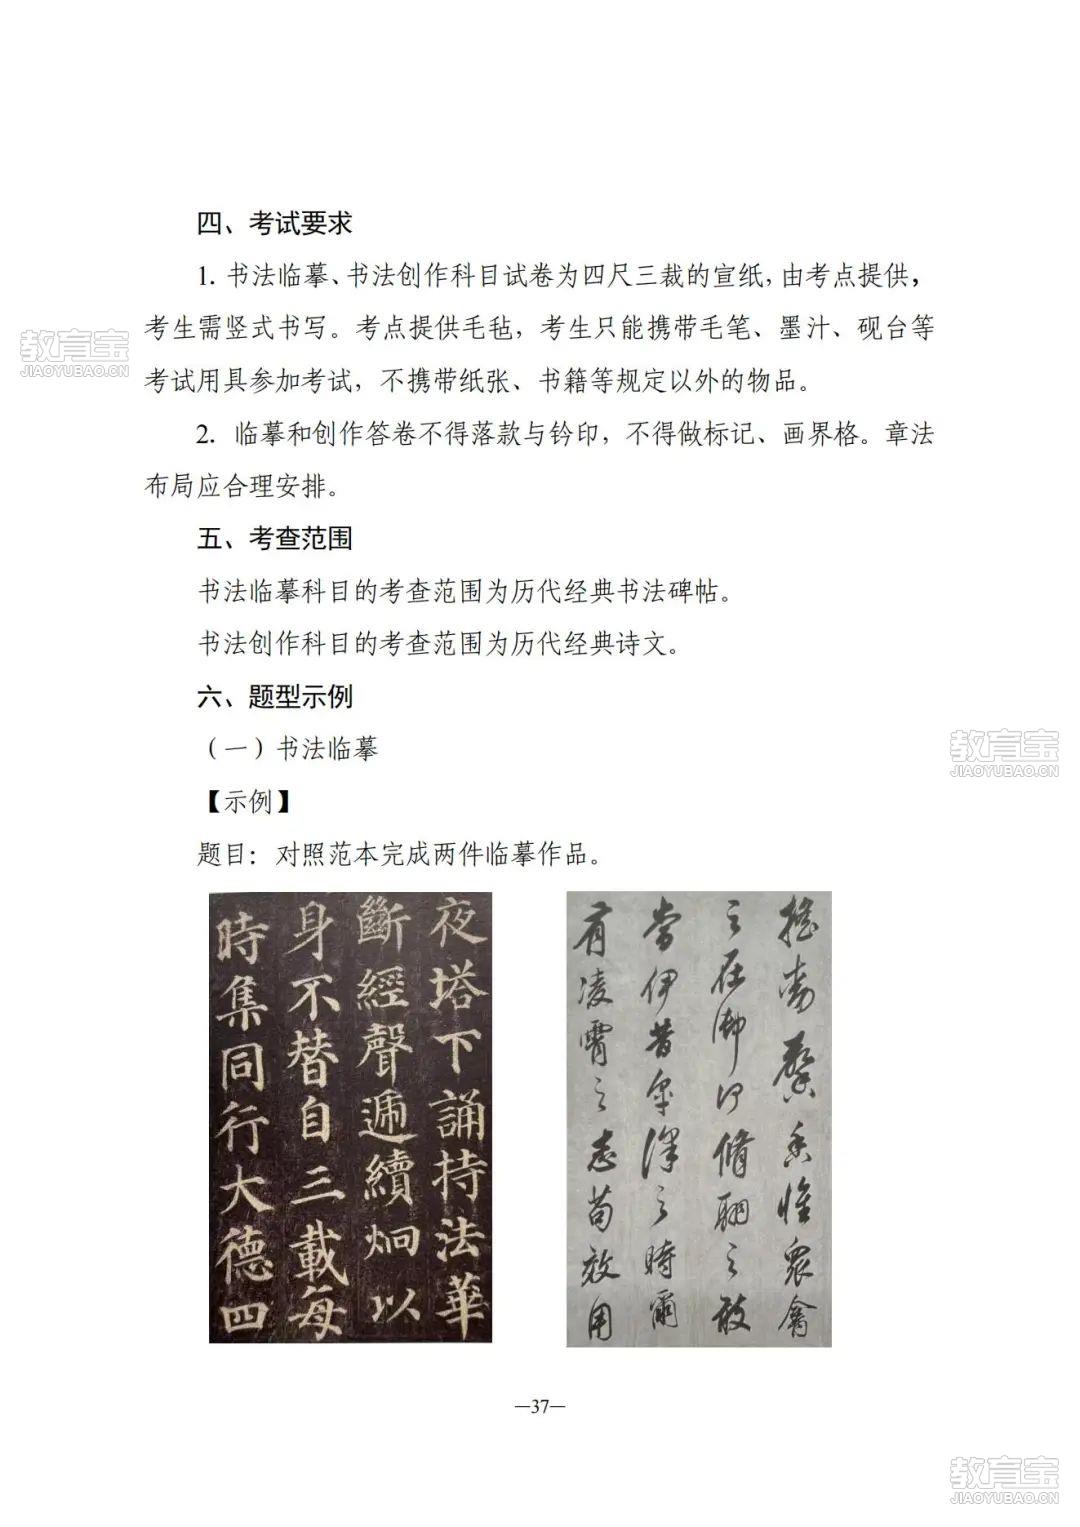 四、考试要求
1. 书法临摹、书法创作科目试卷为四尺三裁的宣纸,由考点提供,
考生需竖式书写。考点提供毛毡，考生只能携带毛笔、墨汁、砚台等
考试用具参加考试，不携带纸张、书籍等规定以外的物品。
2. 临摹和创作答卷不得落款与钤印，不得做标记、画界格。章法
布局应合理安排。
五、考查范围
书法临摹科目的考查范围为历代经典书法碑帖。
书法创作科目的考查范围为历代经典诗文。
六、题型示例
（一）书法临摹
【示例】
题目：对照范本完成两件临摹作品。
夜塔下誦持法華
斷經聲遞續炯以
身不替自三載每
時集同行大德四
搖動馨香惟眾禽
之在御何脩翮之敢
當伊昔皋澤之時爾
有凌霄之志苟效用
—37—
教育宝
JIAOYUBAO.CN
教育宝
JIAOYUBAO.CN
教育宝
JIAOYUBAO.CN